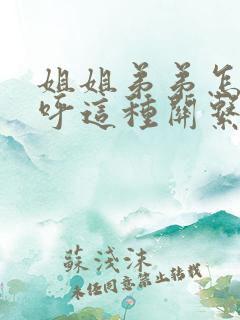 姐姐弟弟怎
呼這種關繫
蘇淺沫
未經同意禁止轉載